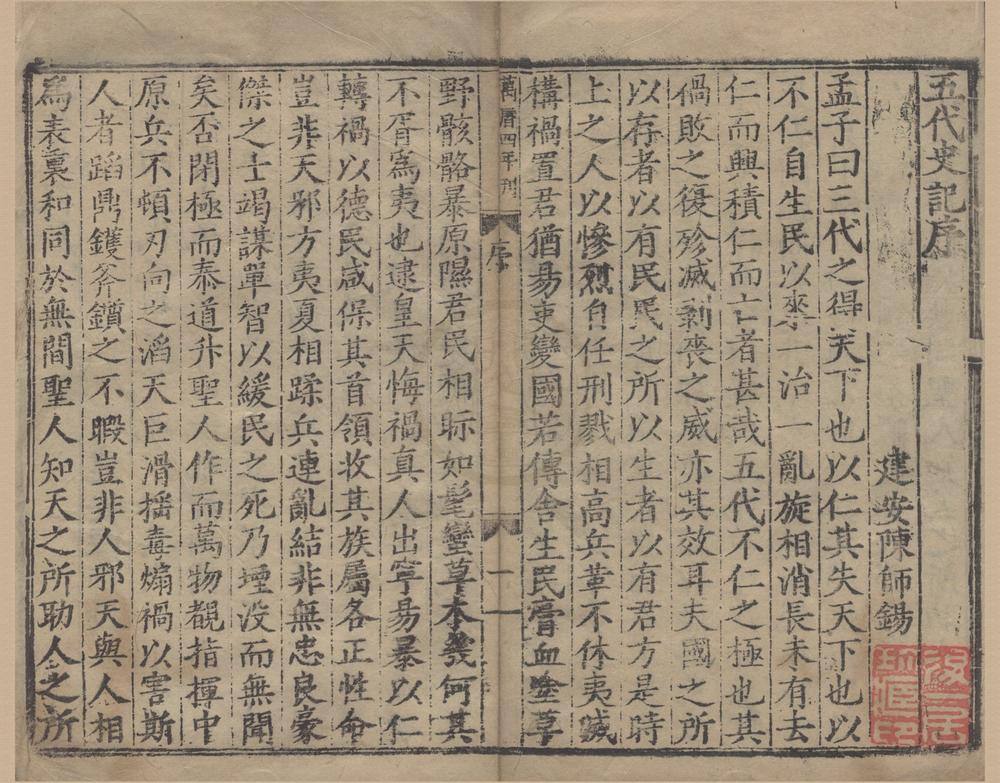 五代史記序
建安陳師錫
孟子曰三代之得天下也以仁其失天下也以
不仁自生民以來一治一亂旋相消長未有去
仁而興積仁而亡者甚哉五代不仁之極也其
禍敗之復殄滅剥喪之威亦其效耳夫國之所
以存者以有民民之所以生者以有君方是時
上之人以慘烈自任刑戮相高兵革不休夷滅
構禍置君猶易吏變國若傳舍生民膏血塗草
萬曆四年刊
序
一
野骸骼暴原隰君民相眎如髦蠻草木幾何其
不胥爲夷也逮皇天悔禍真人出寧易暴以仁
轉禍以德民咸保其首領收其族屬各正性命
豈非天邪方夷夏相蹂兵連亂結非無忠良豪
傑之士竭謀單智以緩民之死乃堙没而無聞
矣否閉極而泰道升聖人作而萬物覩指揮中
原兵不頓刃向之滔天巨滑揺毒煽禍以害斯
人者蹈鼎鑊斧鑕之不暇豈非人邪天與人相
爲表裏和同於無間聖人知天之所助人之所